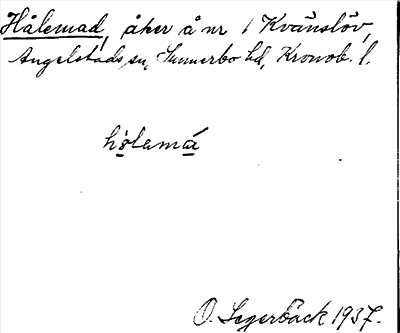 Hålemad, åker å nr 1 Kvänslöv,
Angelstads sn, Sunnerbo hd, Kronob. l.
hålamá
O. Segerbäck 1937.